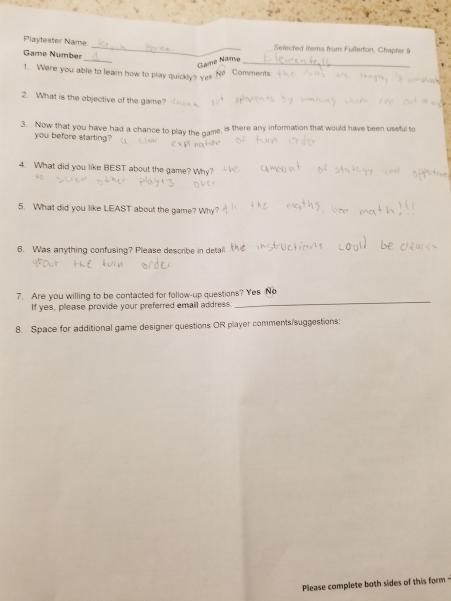 Playtester Name:
Selected Items from Fullerton, Chapter 9
Game Number 1
Game Name Elementalis
1. Were you able to learn how to play quickly? Yes No Comments: the rules are lengthy,
2. What is the objective of the game? opponents by making them run out of
3. Now that you have had a chance to play the game, is there any information that would have been useful to
you before starting? a clear explination of turn order
4. What did you like BEST about the game? Why? the amount of strategy and
to screw other players over
5. What did you like LEAST about the game? Why? All the maths, boo math!!!
6. Was anything confusing? Please describe in detail. the instructions could be clearer
the turn order
7. Are you willing to be contacted for follow-up questions? Yes No
If yes, please provide your preferred email address:
8. Space for additional game designer questions OR player comments/suggestions:
Please complete both sides of this form